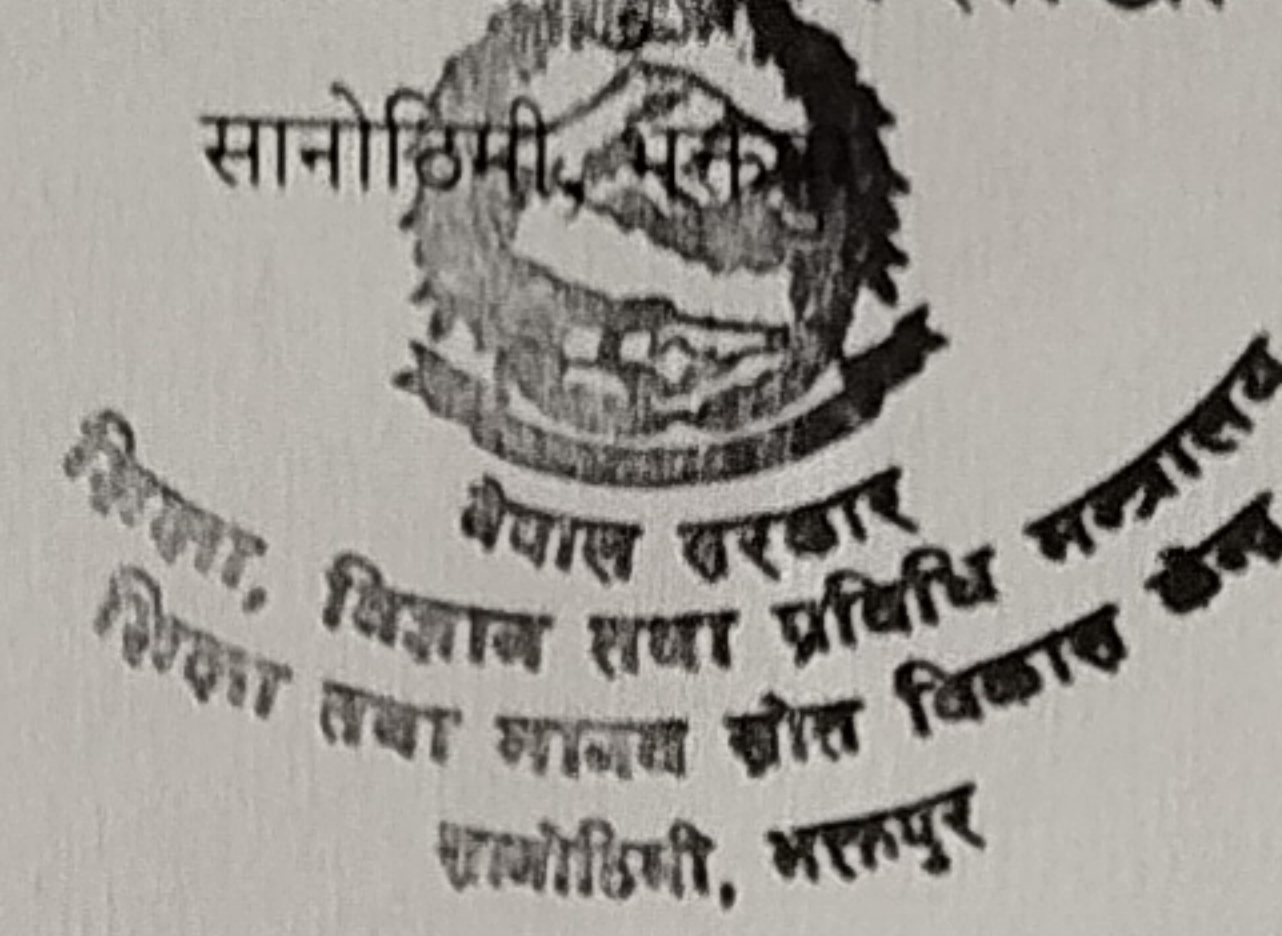 सानोठिमी, भक्त
नेपाल सरकार
शिक्षा, विज्ञान तथा प्रविधि मन्त्रालय
शिक्षा तथा मानव स्रोत विकास केन्द्र
सानोठिमी, भक्तपुर